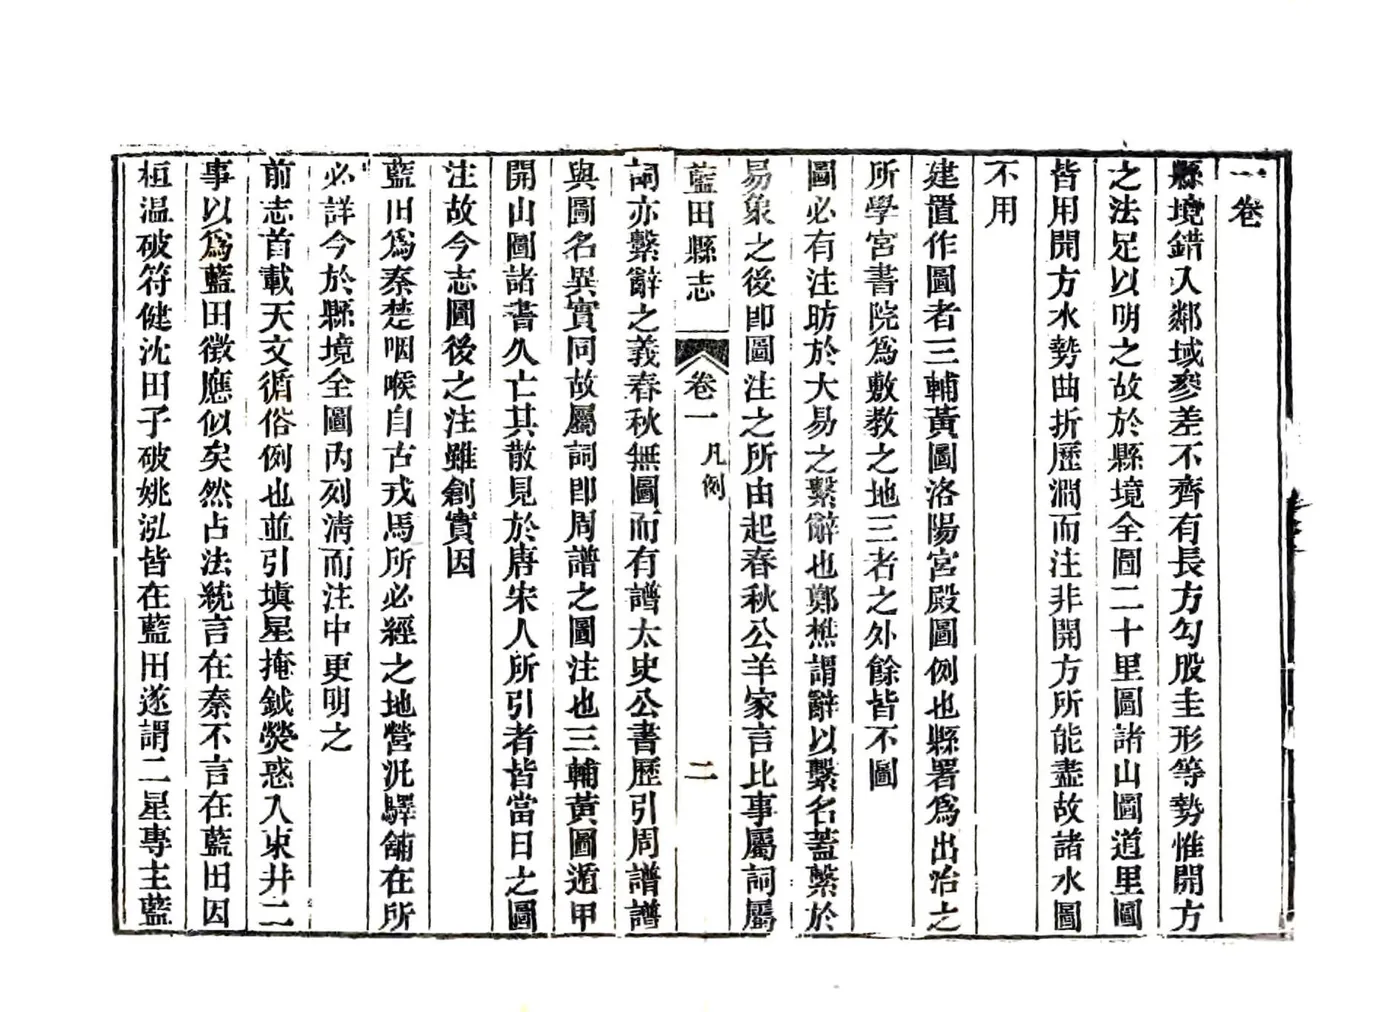 一卷
縣境錯入鄰域參差不齊有長方勾股圭形等勢惟開方
之法足以明之故於縣境全圖二十里圖諸山圖道里圖
皆用開方水勢曲折歷澗而注非開方所能盡故諸水圖
不用
建置作圖者三輔黃圖洛陽宮殿圖例也縣署爲出治之
所學宮書院爲敷教之地三者之外餘皆不圖
圖必有注昉於大易之繫辭也鄭樵謂辭以繫名蓋繫於
易象之後卽圖注之所由起春秋公羊家言比事屬詞屬
藍田縣志
卷一
凡例
二
詞亦繫辭之義春秋無圖而有譜太史公書歷引周譜譜
與圖名異實同故屬詞卽周譜之圖注也三輔黃圖遁甲
開山圖諸書久亡其散見於唐宋人所引者皆當日之圖
注故今志圖後之注雖創實因
藍田爲秦楚咽喉自古戎馬所必經之地營汛驛舖在所
必詳今於縣境全圖內列清而注中更明之
前志首載天文循俗例也並引塡星掩鉞熒惑入東井二
事以爲藍田徵應似矣然占法統言在秦不言在藍田因
桓温破符健沈田子破姚泓皆在藍田遂謂二星專主藍